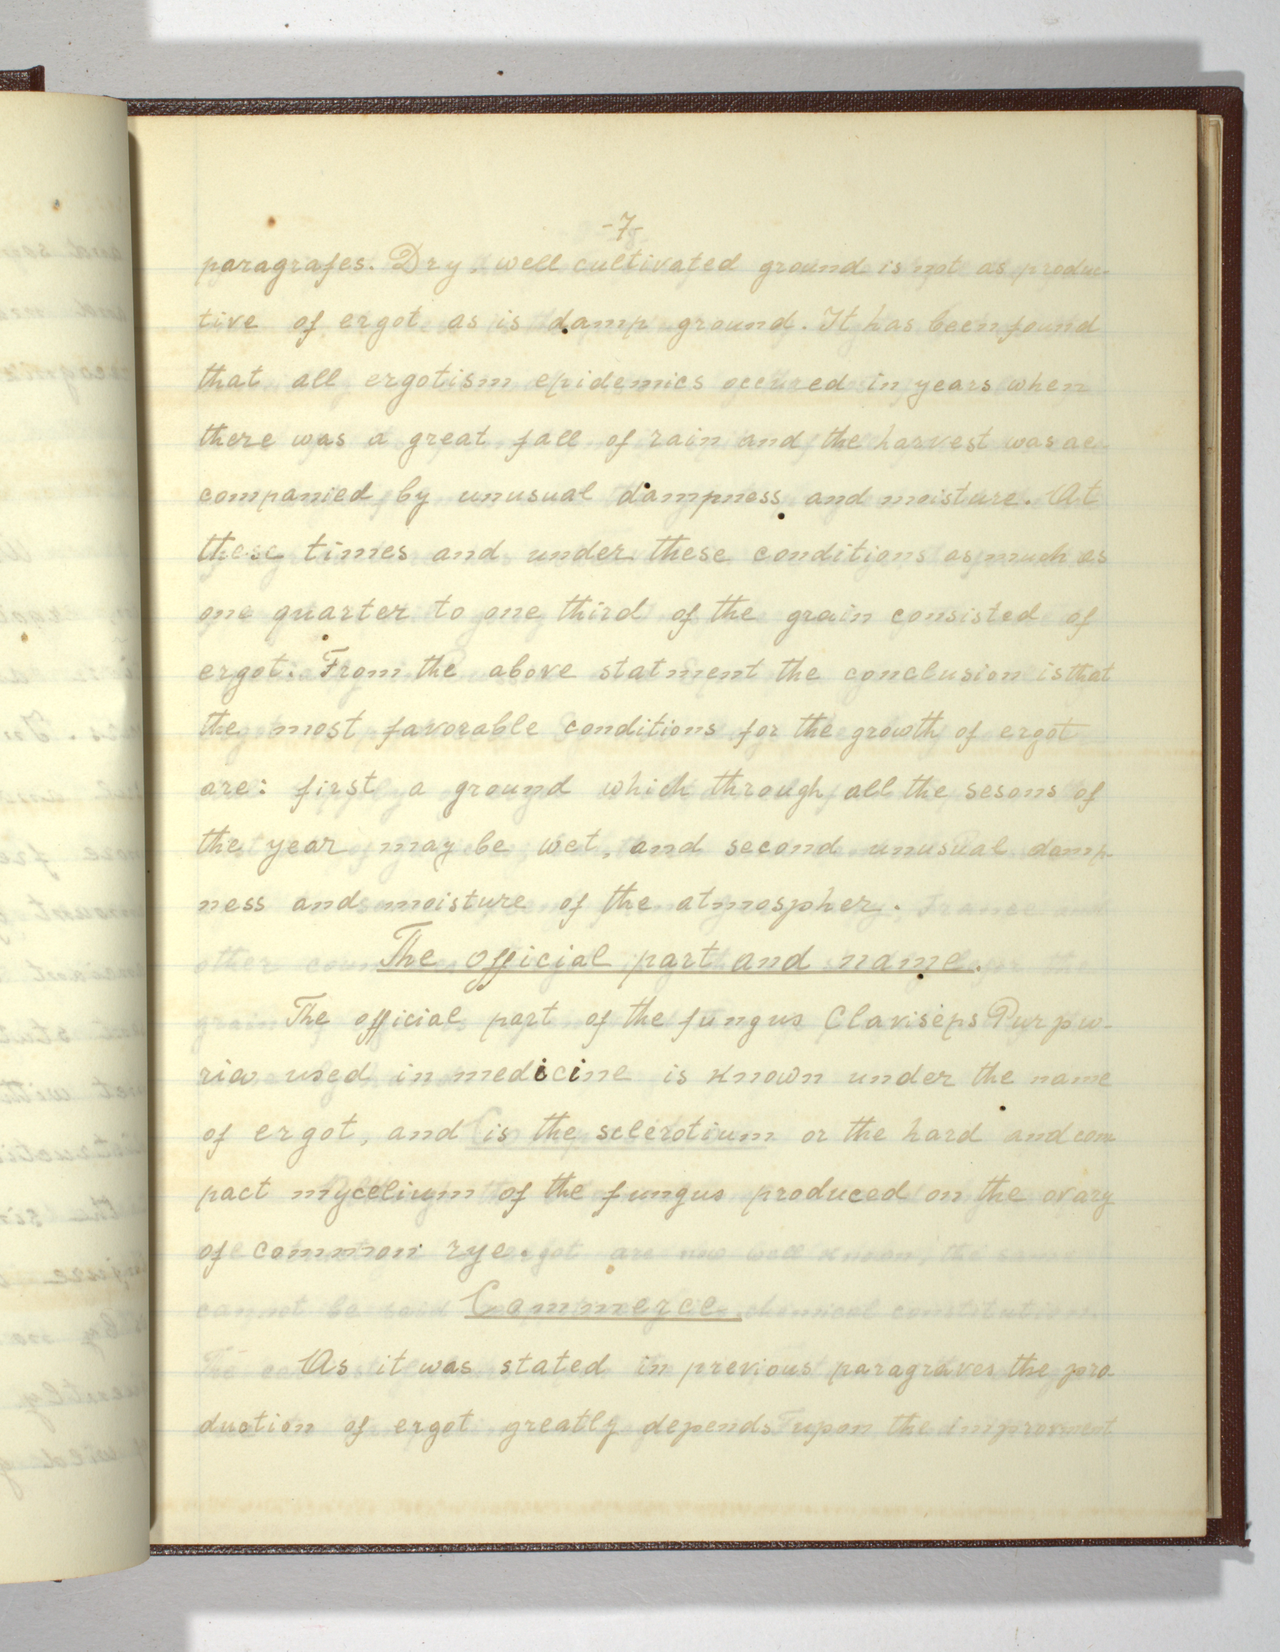 -7-
paragrafes. Dry, well cultivated ground is not as produc-
tive of ergot as is damp ground. It has been found
that all ergotism epidemics occured in years when
there was a great fall of rain and the harvest was ac-
companied by unusual dampness and moisture. At
these times and under these conditions as much as
one quarter to one third of the grain consisted of
ergot. From the above statment the conclusion is that
the most favorable conditions for the growth of ergot
are: first a ground which through all the sesons of
the year may be wet, and second unusual damp-
ness and moisture of the atmospher.
The official part and name.
The official part of the fungus Claviseps Purpu-
ria used in medicine is known under the name
of ergot, and is the sclerotium or the hard and com
pact mycelium of the fungus produced on the ovary
of common rye.
Commerce.
As it was stated in previous paragraves the pro-
duction of ergot greatly depends upon the improvment